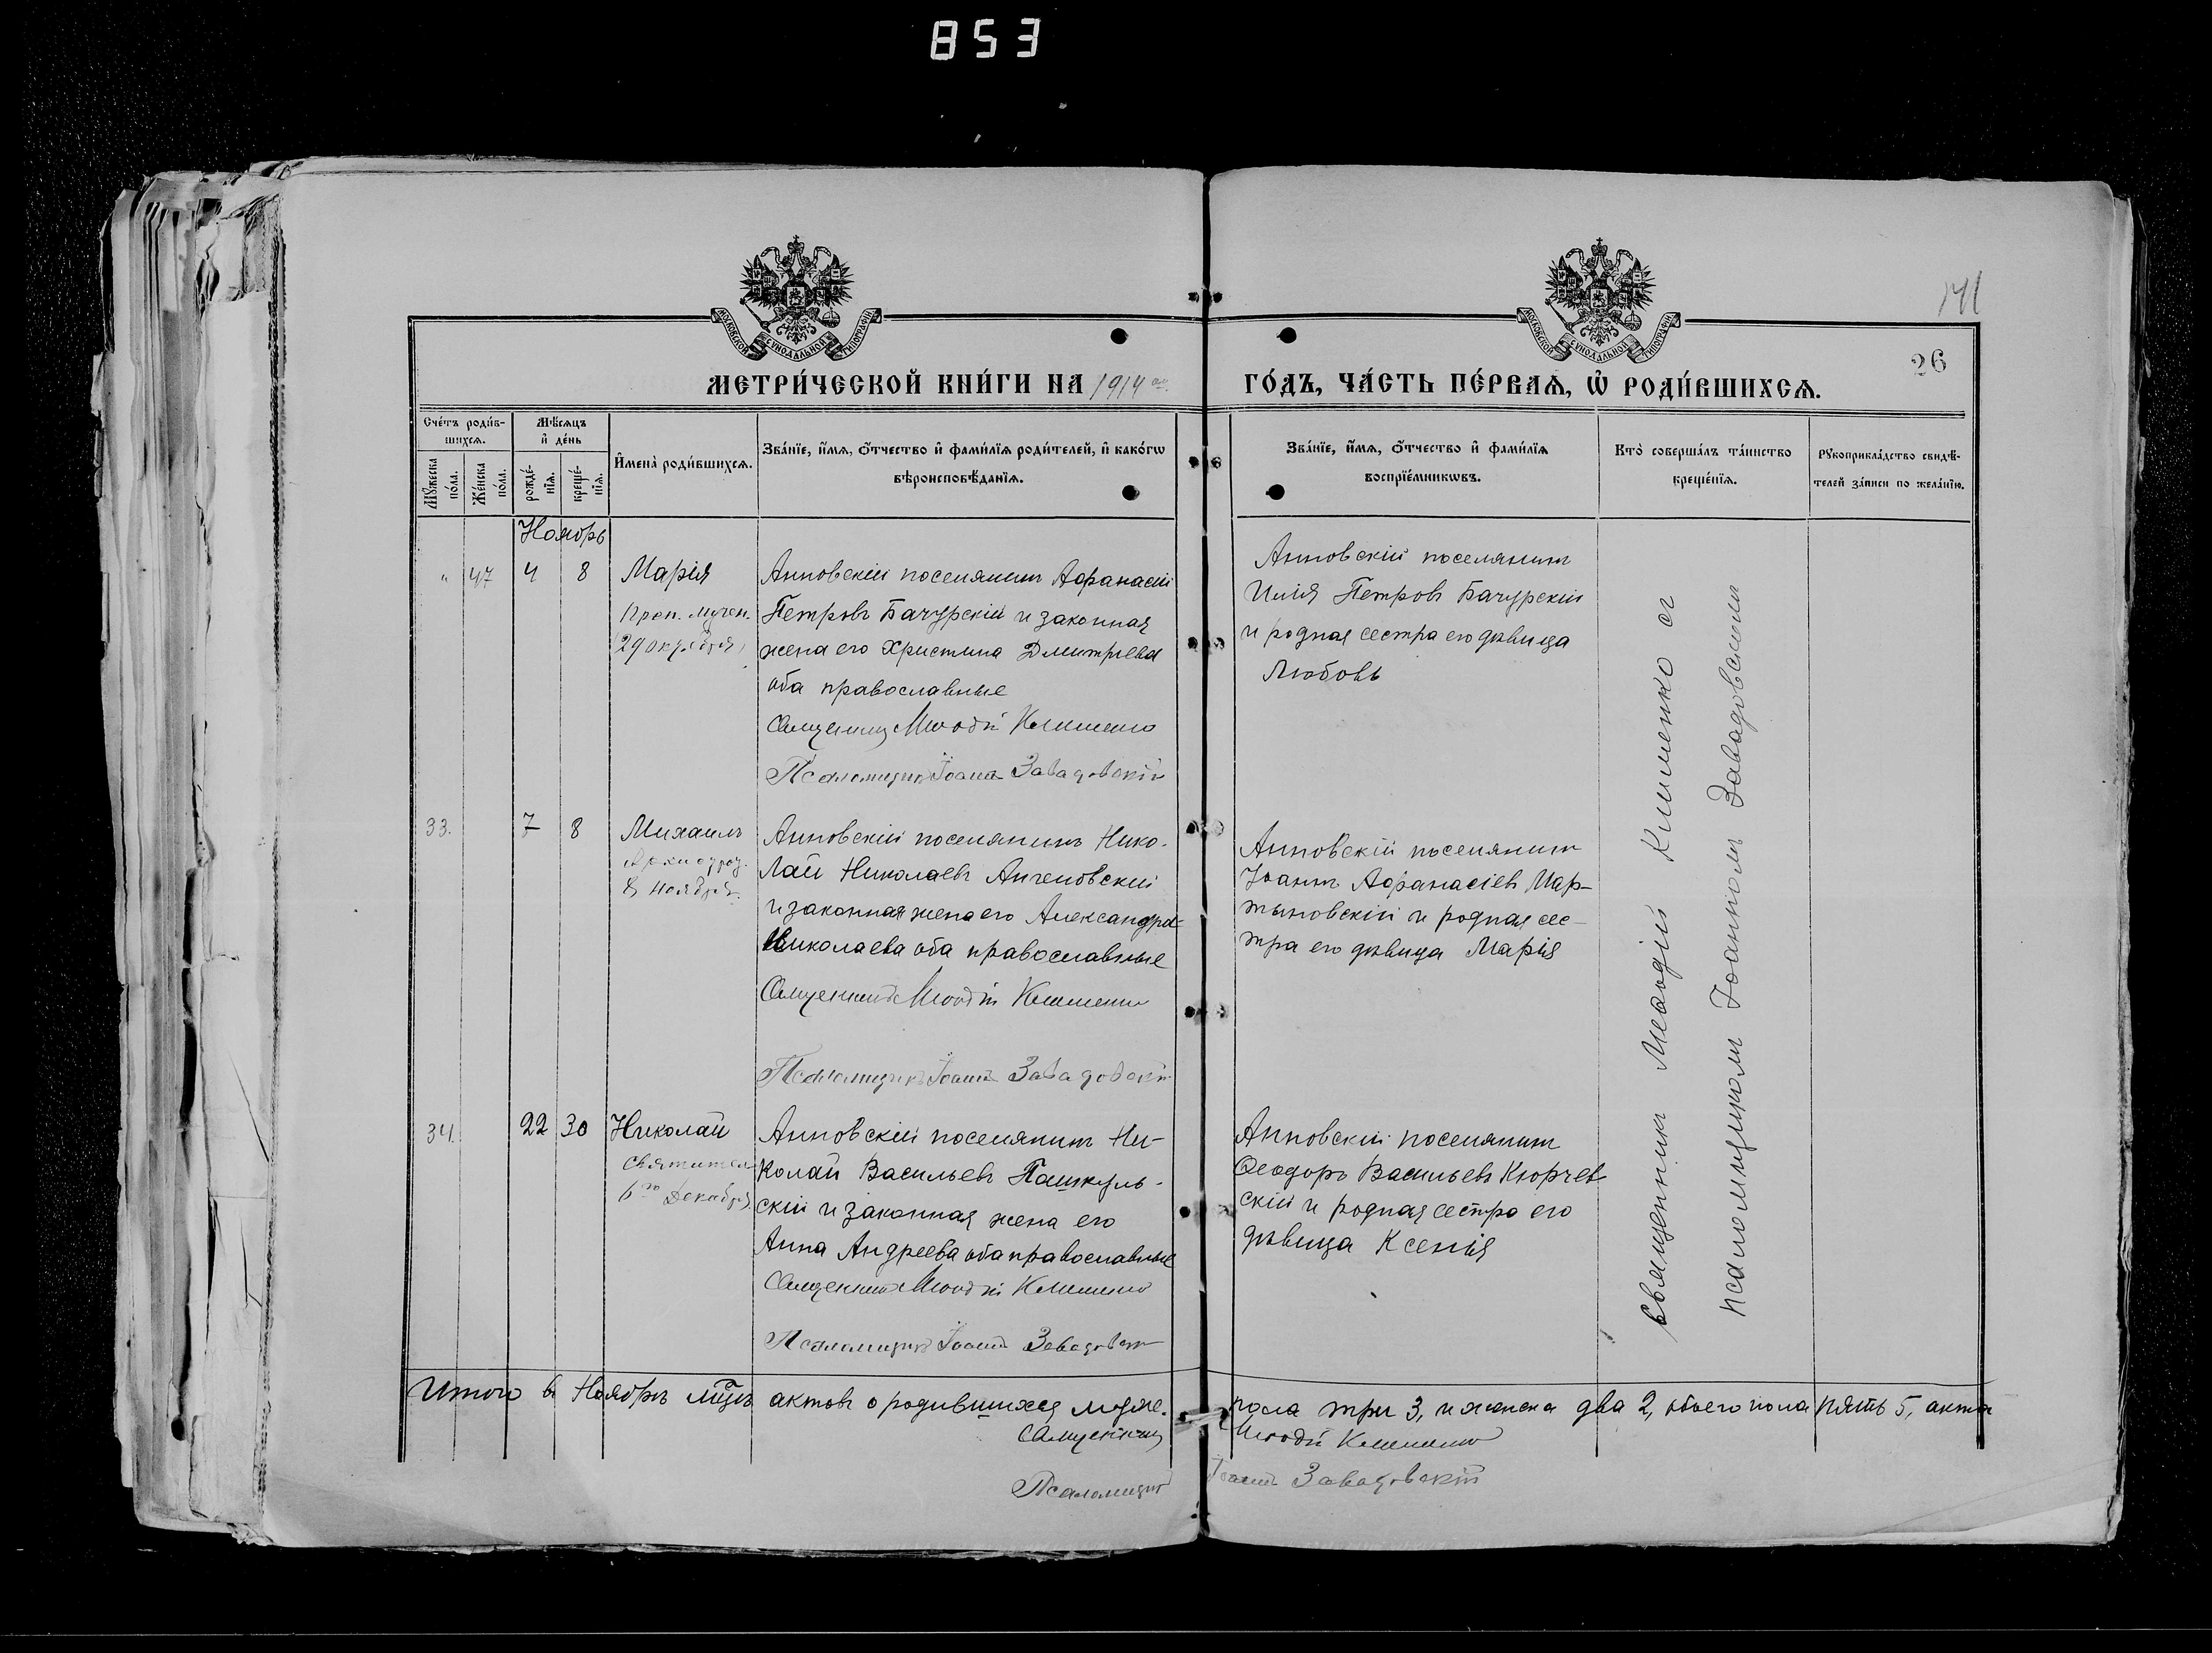 853
141
26
МОСКОВСКОЙ СУНОДАЛЬНОЙ ТИПОГРАФІИ
МОСКОВСКОЙ СУНОДАЛЬНОЙ ТИПОГРАФІИ
МЕТРИ́ЧЕСКОЙ КНИ́ГИ НА 1914 ГО́ДЪ, ЧА́СТЬ ПЕ́РВАѦ, Ѡ҆ РОДИ́ВШИХСѦ.
Сче́тъ роди́в-
шихсѧ.
Мꙋ́жеска по́ла.
Же́нска по́ла.
Мѣ́сѧцъ
и҆ де́нь
рожде́-
нїѧ.
креще́-
нїѧ.
И҆мена̀ роди́вшихсѧ.
Зва́нїе, и҆́мѧ, ѻ҆́тчество и҆ фами́лїѧ роди́телей, и҆ како́гѡ
вѣроисповѣ́данїѧ.
Зва́нїе, и҆́мѧ, ѻ҆́тчество и҆ фами́лїѧ
воспрїе́мникѡвъ.
Кто̀ соверша́лъ та́инство
креще́нїѧ.
Рꙋкоприкла́дство свидѣ́-
телей за́писи по жела́нїю.
Ноябрь
" 47 4 8 Марія
Преп. мучен.
29 октября
Анновскій поселянинъ Афанасій
Петровъ Бачурскій и законная
жена его Христина Дмитріева
оба православные
Священникъ Меѳодій Клименко
Псаломщикъ Іоаннъ Завадовскій
Анновскій поселянинъ
Илія Петровъ Бачурскій
и родная сестра его дѣвица
Любовь
33. 7 8 Михаилъ
8 ноября
Анновскій поселянинъ Нико-
лай Николаевъ Ангеловскій
и законная жена его Александра
Николаева оба православные
Священникъ Меѳодій Клименко
Псаломщикъ Іоаннъ Завадовскій
Анновскій поселянинъ
Іоаннъ Афанасіевъ Мар-
тыновскій и родная сес-
тра его дѣвица Марія
34. 22 30 Николай
Святител
6го Декабря
Анновскій поселянинъ Ни-
колай Васильевъ Пашкуль-
скій и законная жена его
Анна Андреева оба православные
Священникъ Меѳодій Клименко
Псаломщикъ Іоаннъ Завадовскій
Анновскій поселянинъ
Ѳеодоръ Васильевъ Кюрчев-
скій и родная сестра его
дѣвица Ксенія
священникъ Меѳодій Клименко съ
псаломщикомъ Іоанномъ Завадовскимъ
Итого въ Ноябрѣ мцѣ актовъ о родившихся муже. пола три 3, и женска два 2, обоего пола пять 5, актовъ
Священникъ Меѳодій Клименко
Псаломщикъ Іоаннъ Завадовскій